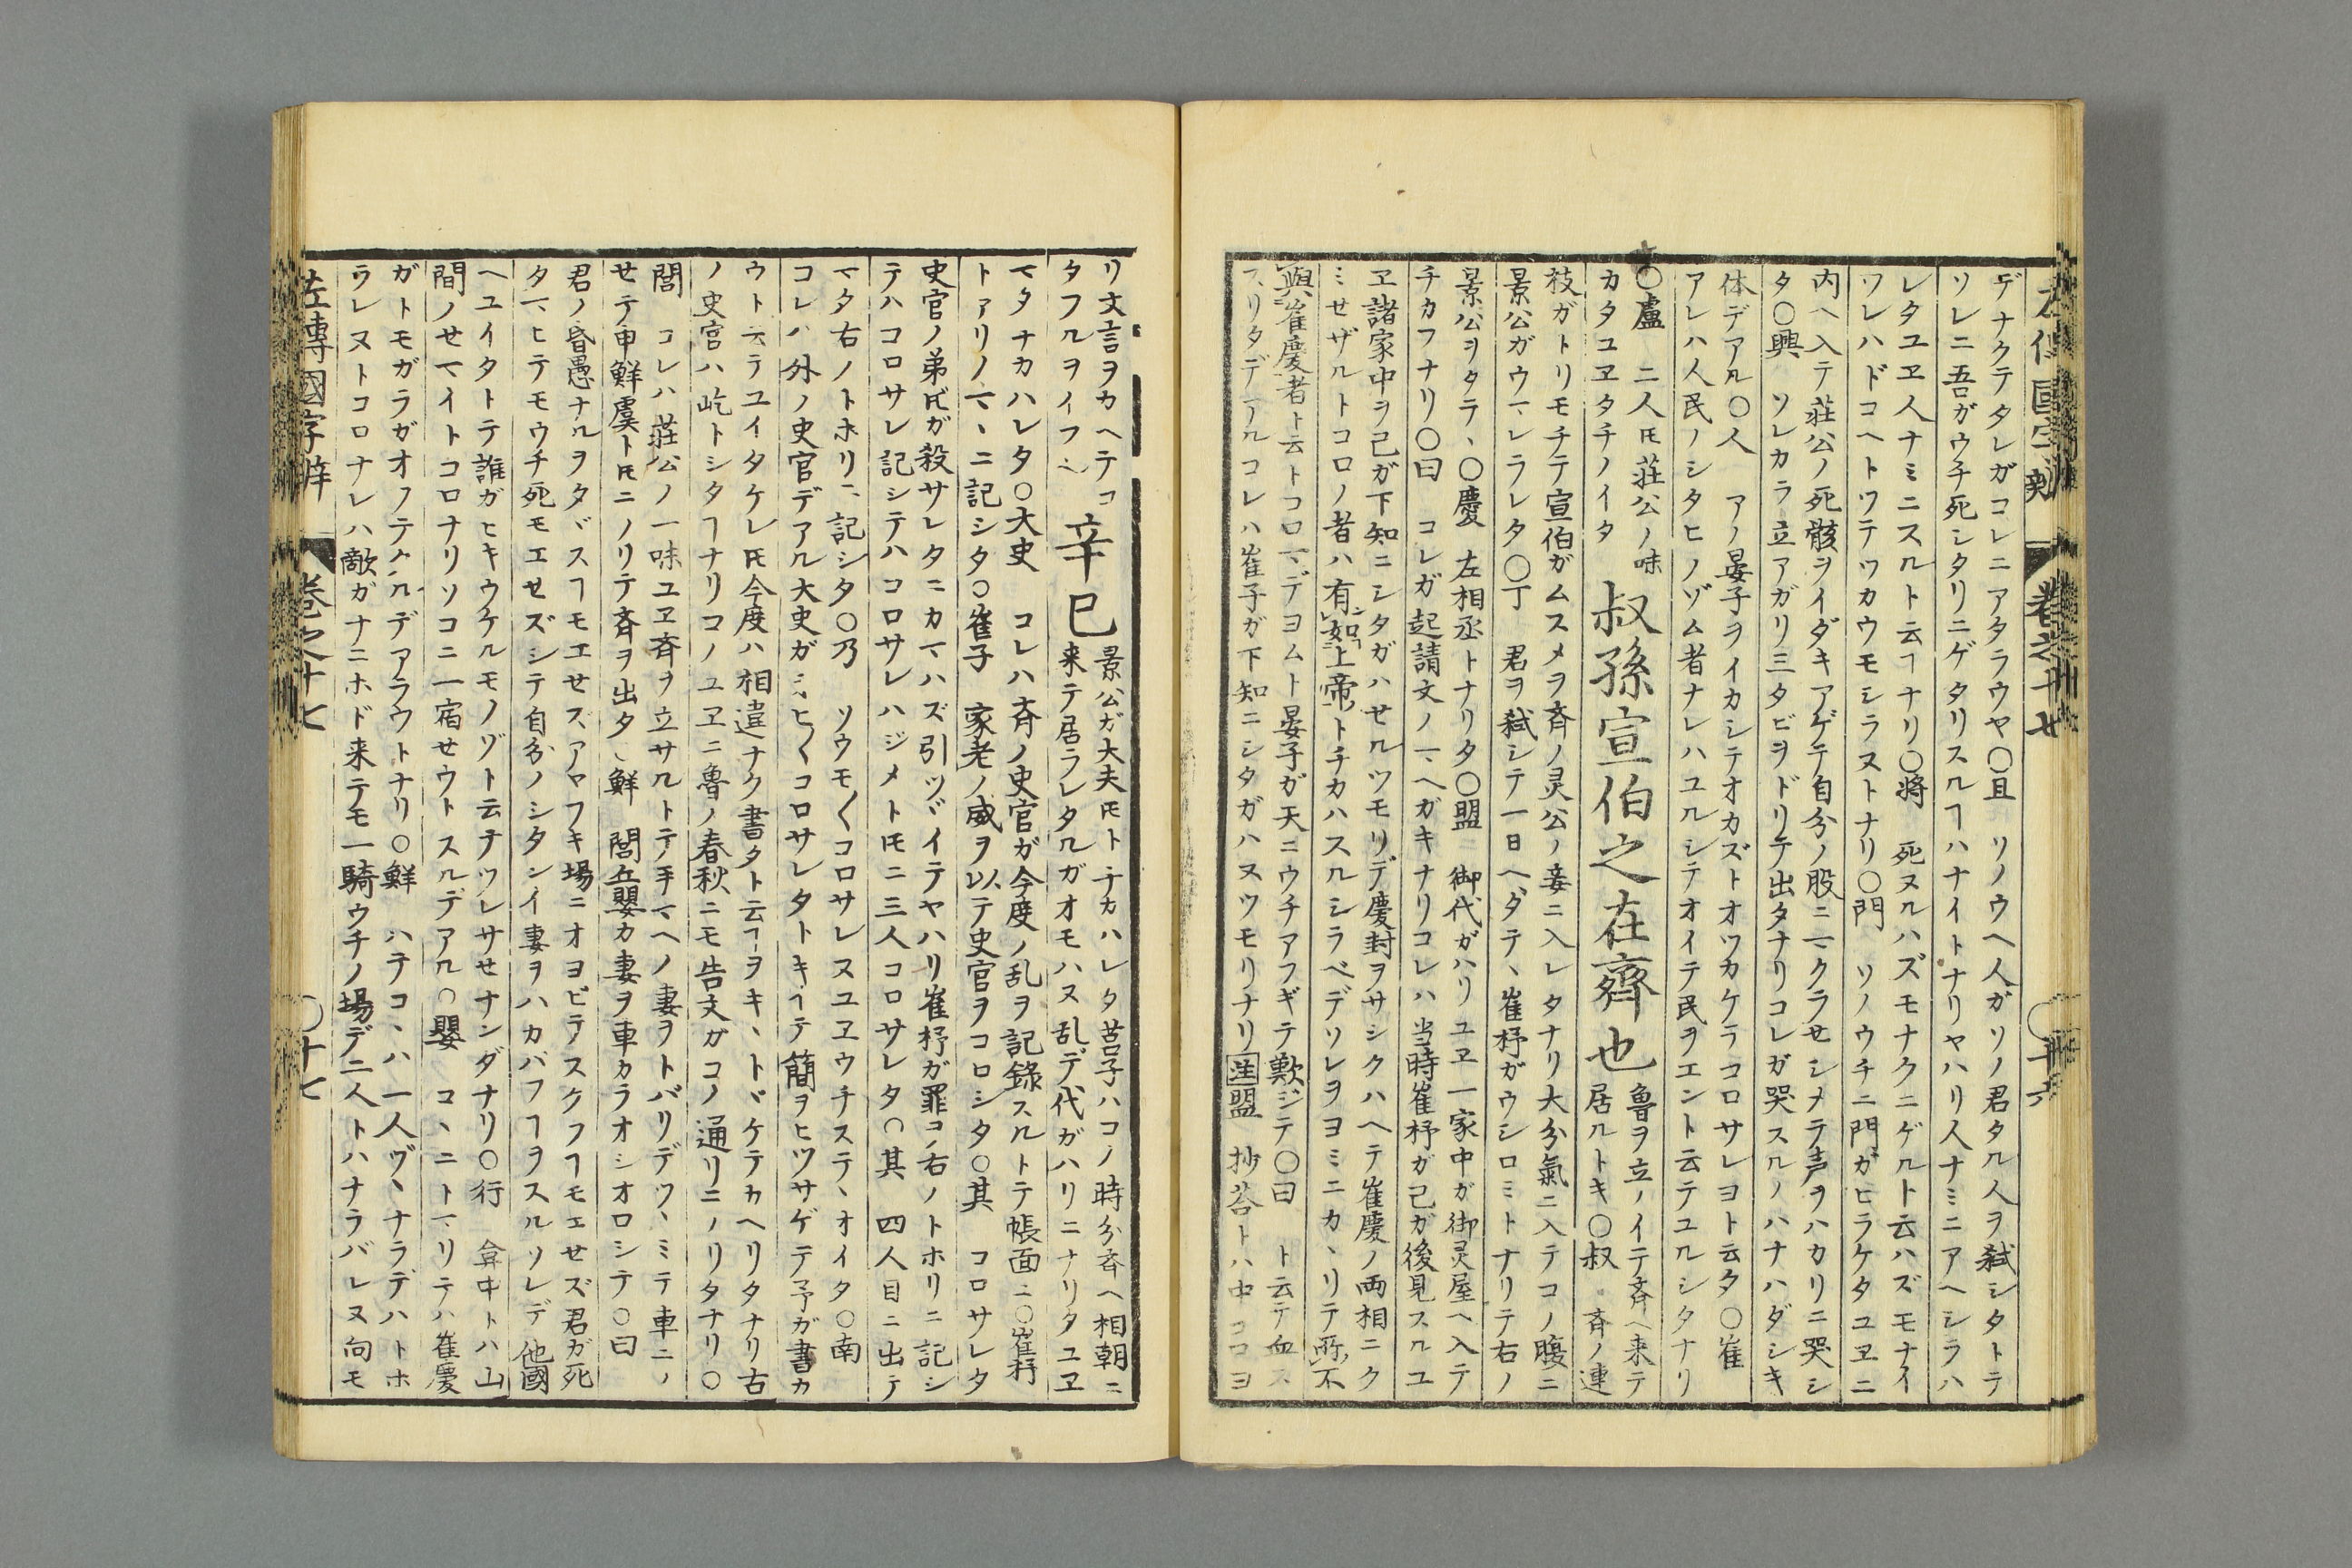 デナクテタレガコレニアタラウヤ〇且　ソノウヘ人ガソノ君タル人ヲ弑シタトテ
ソレニ吾ガウチ死シタリニゲタリスルヿハナイトナリヤハリ人ナミニアヘシラハ
レタユヱ人ナミニスルト云ヿナリ〇將　死ヌルハズモナクニゲルト云ハズモナイ
ソレハドコヘトツテツカウモシラヌトナリ〇門　ソノウチニ門ガヒラケタユヱニ
内ヘ入テ莊公ノ死骸ヲイダキアゲテ自分ノ股ニマクラセシメテ声ヲハカリニ哭シ
タ〇興　ソレカラ立アガリ三タビヲドリテ出タナリコレガ哭スルノハナハダシキ
体デアル〇人　アノ晏子ヲイカシテオカズトオツカケテコロサレヨト云タ〇崔
アレハ人民ノシタヒノゾム者ナレハユルシテオイテ民ヲエント云テユルシタナリ
〇盧　二人𪜈莊公ノ味
カタユヱタチノイタ
叔孫宣伯之在齊也
魯ヲ立ノイテ斉ヘ来テ
居ルトキ〇叔　斉ノ連
枝ガトリモチテ宣伯ガムスメヲ斉ノ灵公ノ妾ニ入レタナリ大分氣ニ入テコノ腹ニ
景公ガウマレラレタ〇丁　君ヲ弑シテ一日ヘダテヽ崔杼ガウシロミトナリテ右ノ
景公ヲタテヽ〇慶　左相丞トナリタ〇盟　御代ガハリユヱ一家中ガ御灵屋ヘ入テ
チカフナリ〇曰　コレガ起請文ノマヘガキナリコレハ当時崔杼ガ己ガ後見スルユ
ヱ諸家中ヲ己ガ下知ニシタガハセルツモリデ慶封ヲサシクハヘテ崔慶ノ両相ニク
ミセザルトコロノ者ハ有如上帝トチカハスルシラベデソレヲヨミニカヽリテ所不
與崔慶者ト云トコロマデヨムト晏子ガ天ニウチアフギテ歎ジテ〇曰　ト云テ血ス
スリタデアルコレハ崔子ガ下知ニシタガハヌツモリナリ注盟　抄荅トハ中ココヨ
左傳國字辯　卷之十七　〇十七
リ文言ヲカヘテコ
タフルヲイフ
辛巳
景公ガ大夫𪜈トチカハレタ莒子ハコノ時分斉ヘ相朝ニ
来テ居ラレタルガオモハヌ乱デ代ガハリニナリタユヱ
マタチカハレタ〇大史　コレハ斉ノ史官ガ今度ノ乱ヲ記錄スルトテ帳面ニ〇崔杼
トアリノマヽニ記シタ〇崔子　家老ノ威ヲ以テ史官ヲコロシタ〇其　コロサレタ
史官ノ弟𪜈ガ殺サレタニカマハズ引ツヾイテヤハリ崔杼ガ罪コノ右ノトホリニ記シ
テハコロサレ記シテハコロサレハジメト𪜈ニ三人コロサレタ〇其　四人目ニ出テ
マタ右ノトホリニ記シタ〇乃　ソウモ〱コロサレヌユヱウチステヽオイタ〇南
コレハ外ノ史官デアル大史ガミヒ〱コロサレタトキヽテ簡ヲヒツサゲテ予ガ書カ
ウト云テユイタケレ𪜈今度ハ相違ナク書タト云ヿヲキヽトヾケテカヘリタナリ右
ノ史官ハ屹トシタヿナリコノユヱニ魯ノ春秋ニモ告文ガコノ通リニノリタナリ〇
閭　コレハ莊公ノ一味ユヱ斉ヲ立サルトテ手マヘノ妻ヲトバリデツヽミテ車ニノ
せテ申鮮虞ト𪜈ニノリテ斉ヲ出タ〇鮮　閭丘嬰カ妻ヲ車カラオシオロシテ〇曰
君ノ昏愚ナルヲタヾスヿモエせズアヤフキ場ニオヨビテスクフヿモエせズ君ガ死
タマヒテモウチ死モエせズシテ自分ノシタシイ妻ヲハカバフヿヲスルソレデ他國
ヘユイタトテ誰ガヒキウケルモノゾト云テツレサせナンダナリ〇行　弇中トハ山
間ノせマイトコロナリソコニ一宿せウトスルデアル〇嬰　コヽニトマリテハ崔慶
ガトモガラガオフテクルデアラウトナリ〇鮮　ハテコヽハ一人ヅヽナラデハトホ
ラレヌトコロナレハ敵ガナニホド来テモ一騎ウチノ場デ二人トハナラバレヌ向モ
左傳國字辯　卷之十七　〇十七